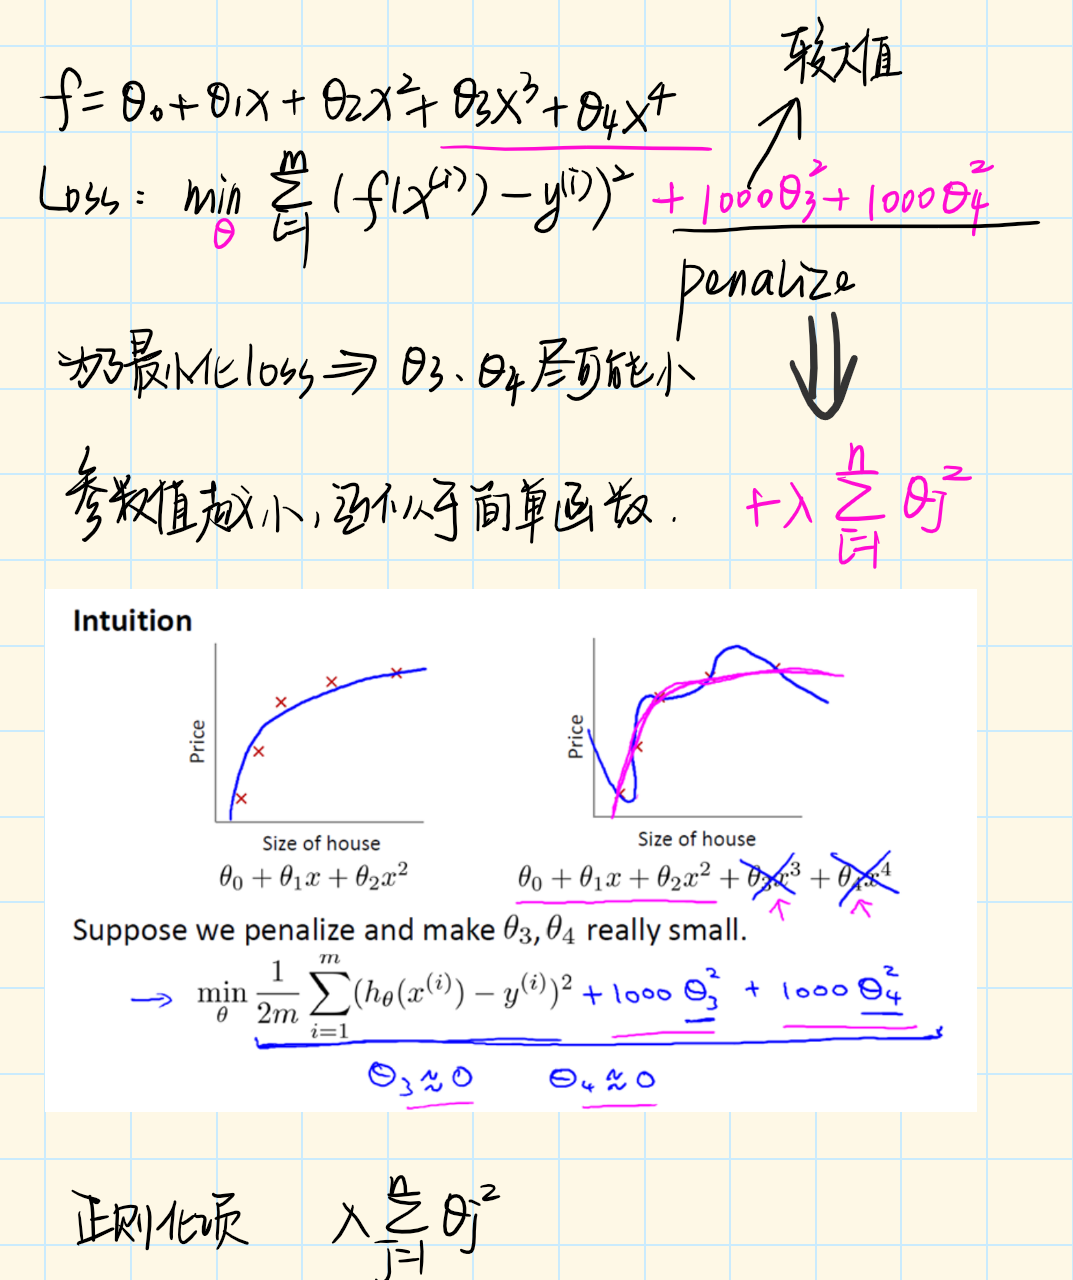 较大值
f = θ₀ + θ1x + θ2x² + θ3x³ + θ4x⁴
Loss: min_θ ∑_{i=1}^{m} (f(x⁽ⁱ⁾) − y⁽ⁱ⁾)² + 1000θ₃² + 1000θ₄²
penalize
为了最小化loss ⇒ θ3、θ4尽可能小
参数值越小，近似于简单函数.
+ λ ∑_{i=1}^{n} θj²
Intuition
Price Price
Size of house Size of house
θ₀ + θ₁x + θ₂x² θ₀ + θ₁x + θ₂x² + θ₃x³ + θ₄x⁴
Suppose we penalize and make θ₃, θ₄ really small.
→ min_θ 1/2m ∑_{i=1}^{m} (h_θ(x⁽ⁱ⁾) − y⁽ⁱ⁾)² + 1000 θ₃² + 1000 θ₄²
θ₃ ≈ 0 θ₄ ≈ 0
正则化项 λ ∑_{j=1}^{n} θj²